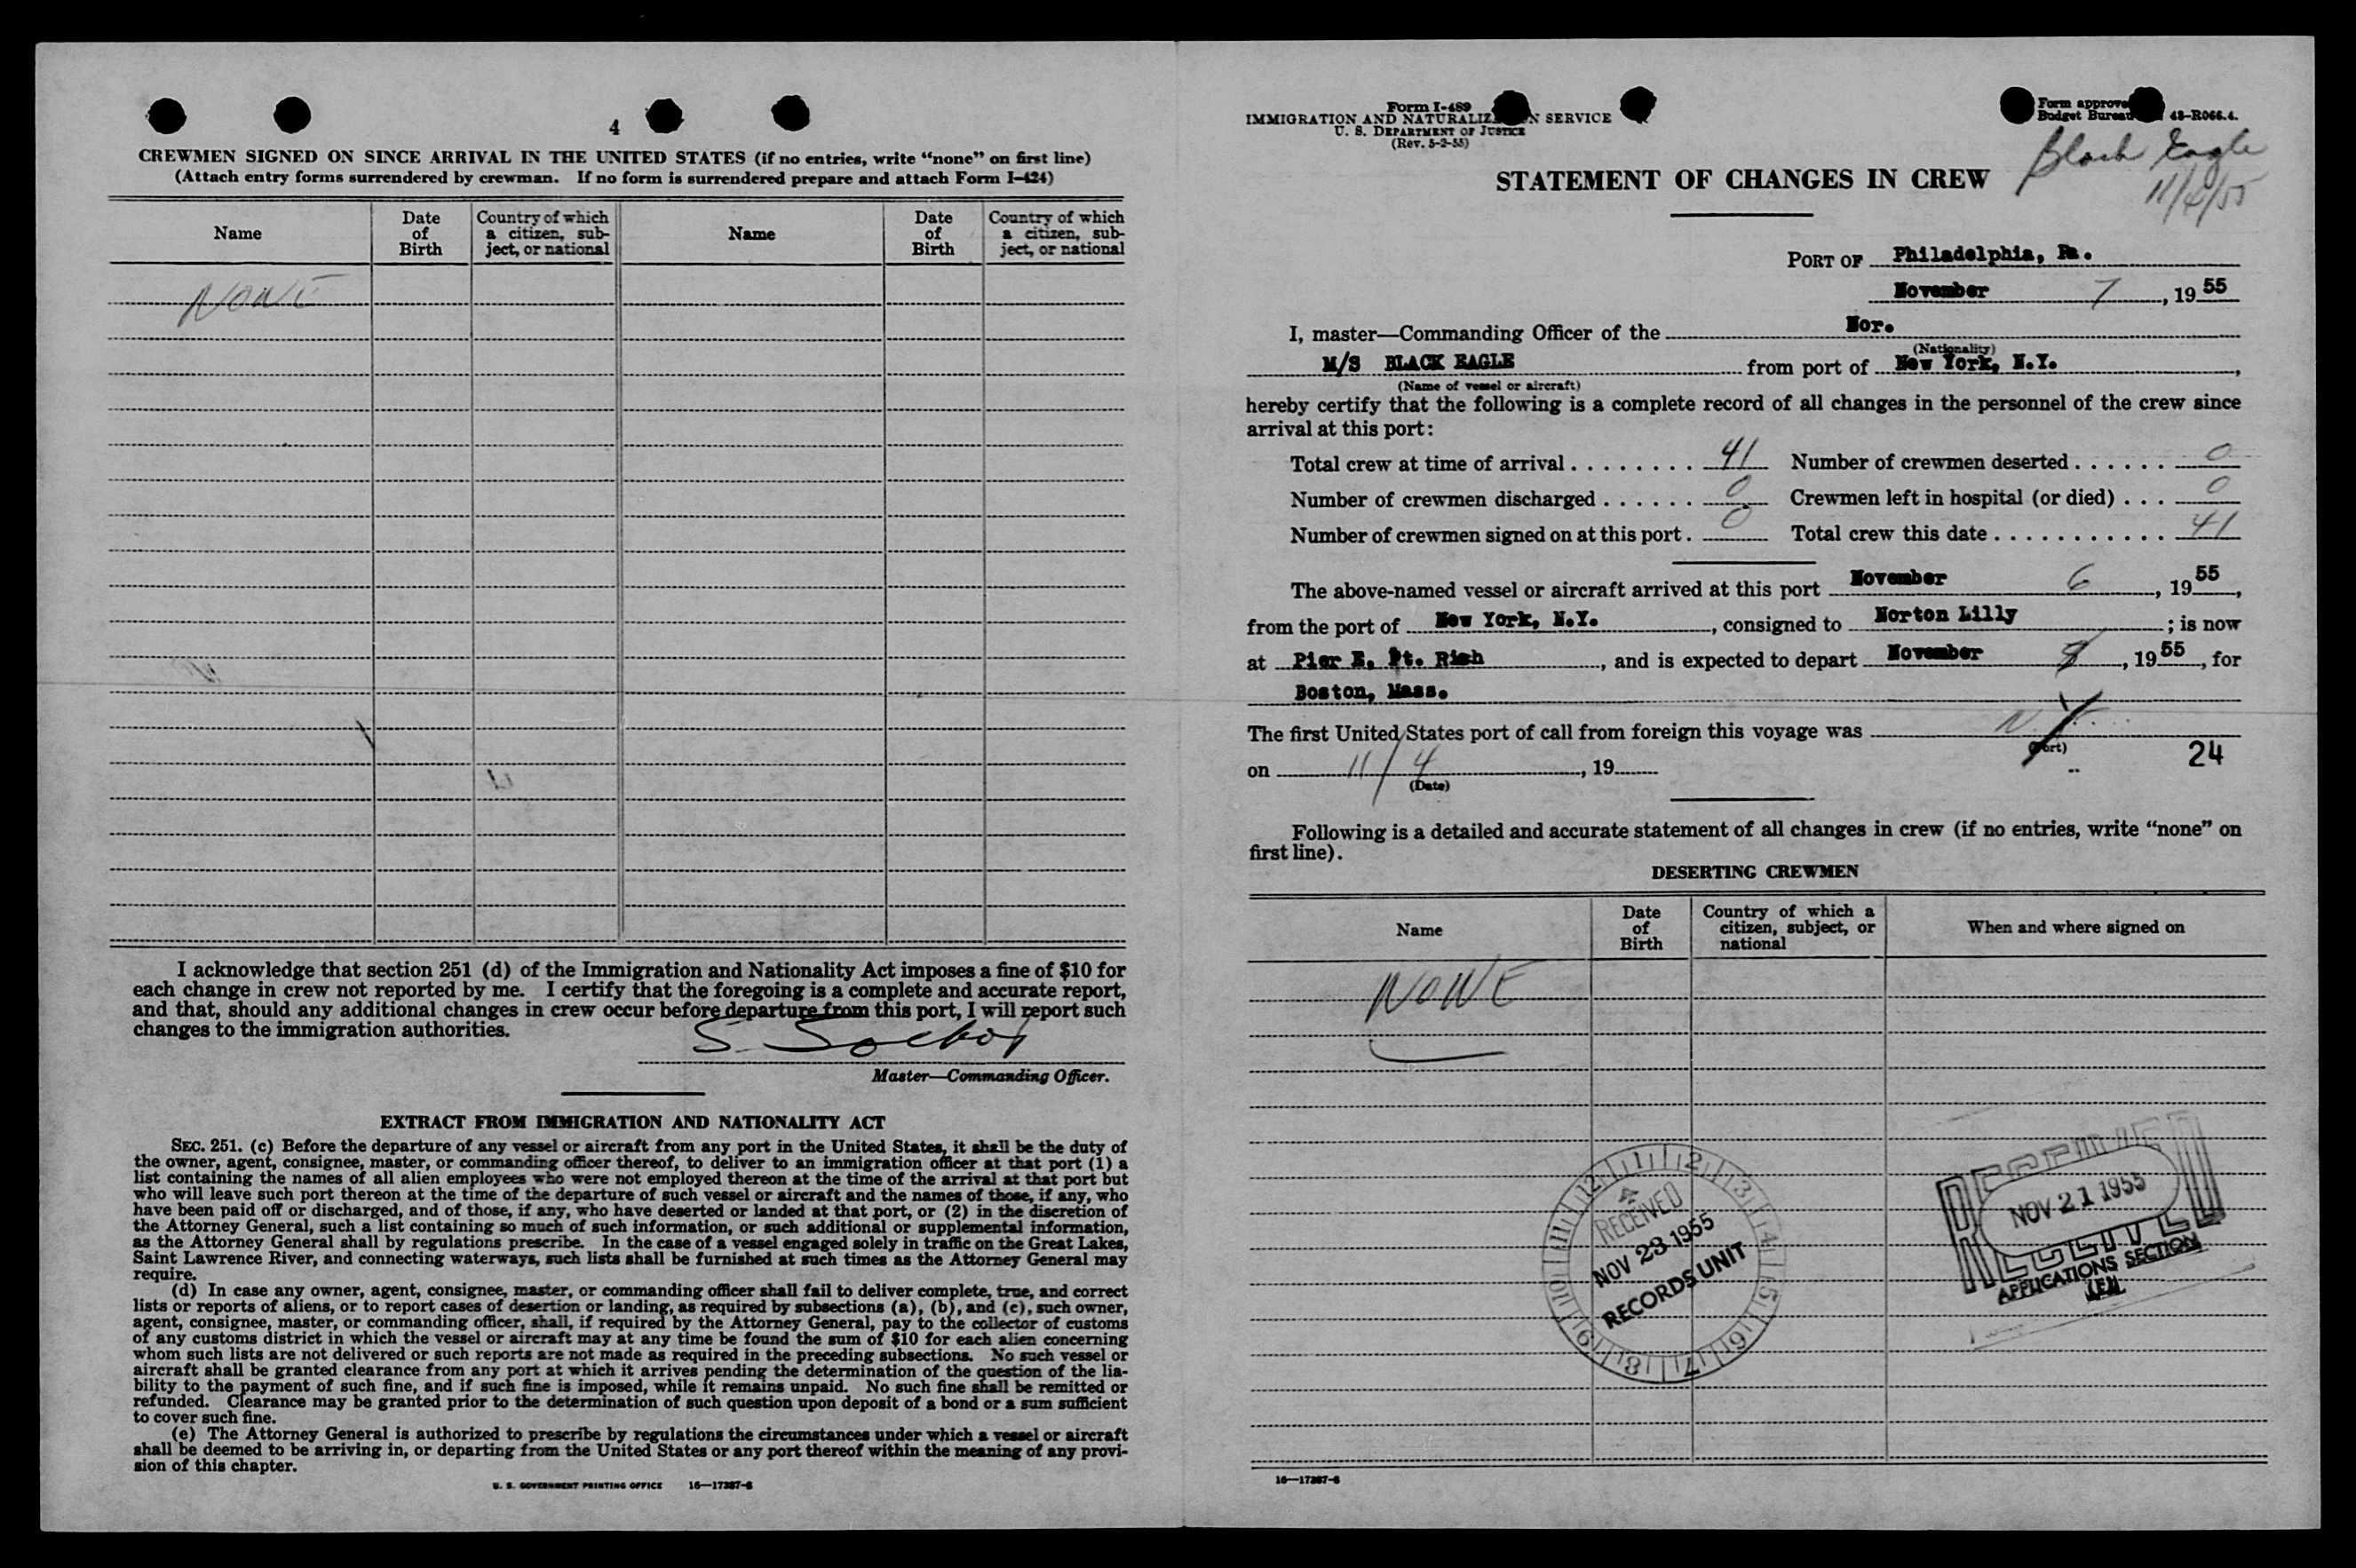 4
CREWMEN SIGNED ON SINCE ARRIVAL IN THE UNITED STATES (if no entries, write “none” on first line)
(Attach entry forms surrendered by crewman. If no form is surrendered prepare and attach Form I-424)
Name
Date of Birth
Country of which a citizen, subject, or national
Name
Date of Birth
Country of which a citizen, subject, or national
NONE
I acknowledge that section 251 (d) of the Immigration and Nationality Act imposes a fine of $10 for
each change in crew not reported by me. I certify that the foregoing is a complete and accurate report,
and that, should any additional changes in crew occur before departure from this port, I will report such
changes to the immigration authorities.
Master—Commanding Officer.
EXTRACT FROM IMMIGRATION AND NATIONALITY ACT
SEC. 251. (c) Before the departure of any vessel or aircraft from any port in the United States, it shall be the duty of
the owner, agent, consignee, master, or commanding officer thereof, to deliver to an immigration officer at that port (1) a
list containing the names of all alien employees who were not employed thereon at the time of the arrival at that port but
who will leave such port thereon at the time of the departure of such vessel or aircraft and the names of those, if any, who
have been paid off or discharged, and of those, if any, who have deserted or landed at that port, or (2) in the discretion of
the Attorney General, such a list containing so much of such information, or such additional or supplemental information,
as the Attorney General shall by regulations prescribe. In the case of a vessel engaged solely in traffic on the Great Lakes,
Saint Lawrence River, and connecting waterways, such lists shall be furnished at such times as the Attorney General may
require.
(d) In case any owner, agent, consignee, master, or commanding officer shall fail to deliver complete, true, and correct
lists or reports of aliens, or to report cases of desertion or landing, as required by subsections (a), (b), and (c), such owner,
agent, consignee, master, or commanding officer, shall, if required by the Attorney General, pay to the collector of customs
of any customs district in which the vessel or aircraft may at any time be found the sum of $10 for each alien concerning
whom such lists are not delivered or such reports are not made as required in the preceding subsections. No such vessel or
aircraft shall be granted clearance from any port at which it arrives pending the determination of the question of the lia-
bility to the payment of such fine, and if such fine is imposed, while it remains unpaid. No such fine shall be remitted or
refunded. Clearance may be granted prior to the determination of such question upon deposit of a bond or a sum sufficient
to cover such fine.
(e) The Attorney General is authorized to prescribe by regulations the circumstances under which a vessel or aircraft
shall be deemed to be arriving in, or departing from the United States or any port thereof within the meaning of any provi-
sion of this chapter.
U. S. GOVERNMENT PRINTING OFFICE 16—17387-6
Form I-489
IMMIGRATION AND NATURALIZ N SERVICE
U. S. DEPARTMENT OF JUSTICE
(Rev. 5-2-55)
Form approve
Budget Bureau 43-R066.4.
Black Eagle
11/4/55
STATEMENT OF CHANGES IN CREW
PORT OF Philadelphia, Pa.
November 7, 1955
I, master—Commanding Officer of the Nor.
(Nationality)
M/S BLACK EAGLE from port of New York, N.Y.,
(Name of vessel or aircraft)
hereby certify that the following is a complete record of all changes in the personnel of the crew since
arrival at this port:
Total crew at time of arrival . . . . . . . . 41 Number of crewmen deserted . . . . . . 0
Number of crewmen discharged . . . . . . 0 Crewmen left in hospital (or died) . . . 0
Number of crewmen signed on at this port . 0 Total crew this date . . . . . . . . . . . . 41
The above-named vessel or aircraft arrived at this port November 6, 1955,
from the port of New York, N.Y., consigned to Norton Lilly ; is now
at Pier E, Pt. Rich, and is expected to depart November 8, 1955, for
Boston, Mass.
The first United States port of call from foreign this voyage was N.Y.
(Port)
24
on 11/4, 19
(Date)
Following is a detailed and accurate statement of all changes in crew (if no entries, write “none” on
first line).
DESERTING CREWMEN
Name
Date of Birth
Country of which a citizen, subject, or national
When and where signed on
NONE
12 1 2 3 4 5 6 7 8 9 10 11
RECEIVED
NOV 23 1955
RECORDS UNIT
NOV 21 1955
RECEIVED
APPLICATIONS SECTION
16—17387-6